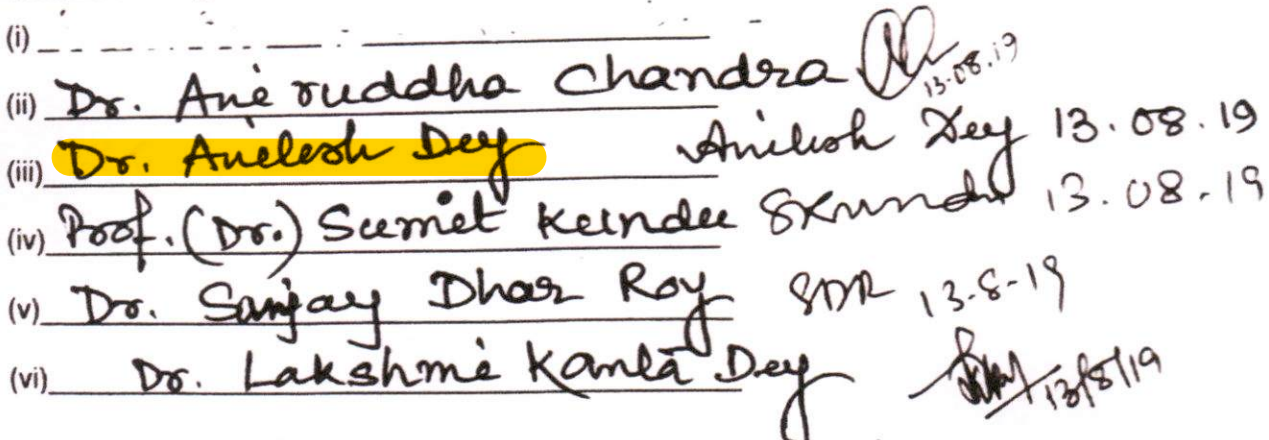 (i)
(ii) Dr. Aniruddha Chandra 13.08.19
(iii) Dr. Anilesh Dey Anilesh Dey 13.08.19
(iv) Prof. (Dr.) Sumit Kundu SKundu 13.08.19
(v) Dr. Sanjay Dhar Roy SDR 13-8-19
(vi) Dr. Lakshmi Kanta Dey 13/8/19